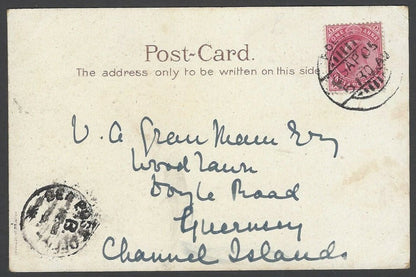 Post-Card.
The address only to be written on this side.
V. A Gran Mann Esq
Woodlawn
Doyle Road
Guernsey
Channel Islands
AP 05